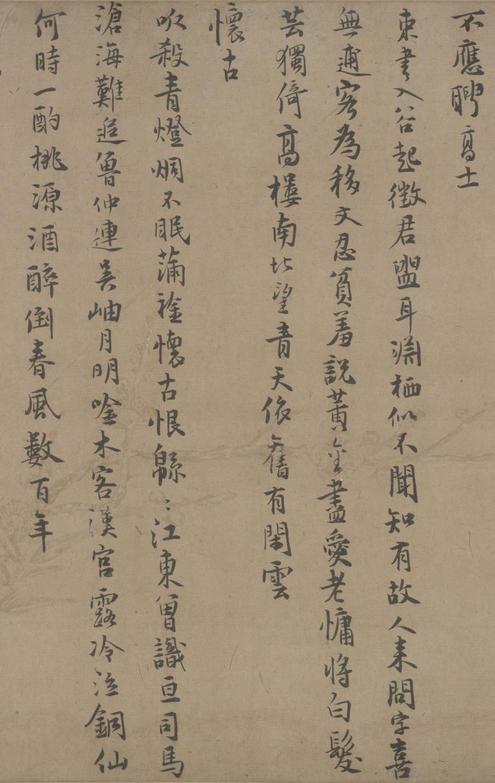 不應聘高士
束書入谷起徵君盥耳淵栖似不聞知有故人来問字喜
無逋客為移文忍貧羞說黄金盡愛老慵将白髮
芸獨倚高樓南北望青天依舊有閑雲
懷古
吹殺青燈烱不眠蒲懷古恨緜〻江東曾識亘司馬
滄海難追魯仲連吳岫月明唫木客漢宮露冷泣銅仙
何時一酌桃源酒醉倒春風數百年